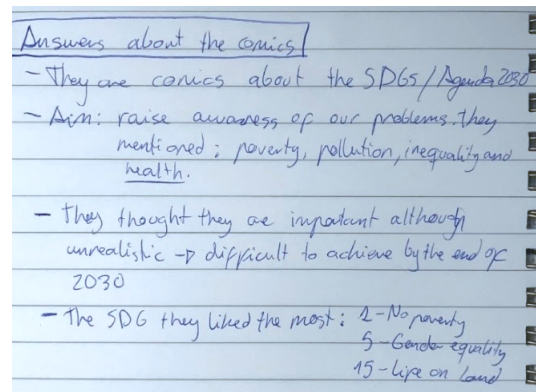 Answers about the comics
- They are comics about the SDGs / Agenda 2030
- Aim: raise awareness of our problems. they
mentioned: poverty, pollution, inequality and
health.
- they thought they are important although
unrealistic → difficult to achieve by the end of
2030
- The SDG they liked the most: 1 - No poverty
5 - Gender equality
15 - Life on land